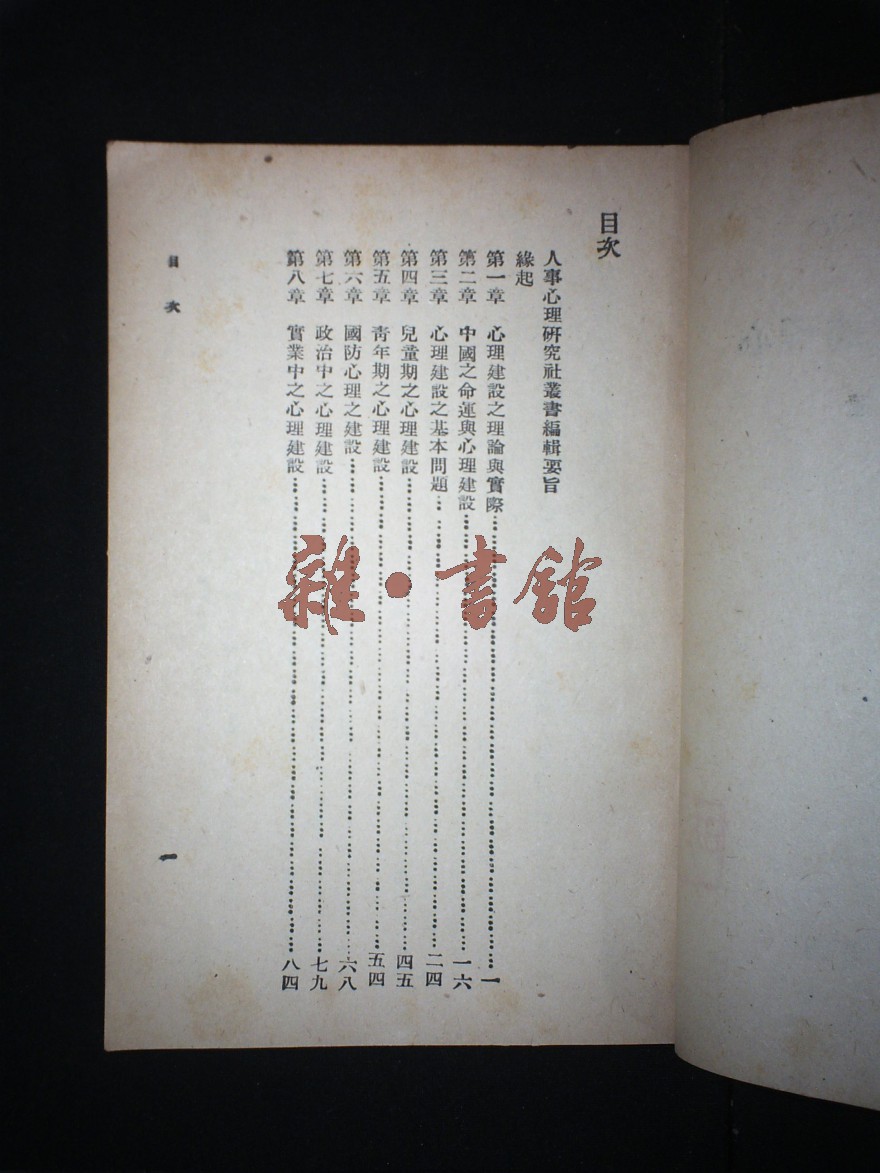 目次
人事心理研究社叢書編輯要旨
緣起
第一章　心理建設之理論與實際……一
第二章　中國之命運與心理建設……一六
第三章　心理建設之基本問題……二四
第四章　兒童期之心理建設……四五
第五章　靑年期之心理建設……五四
第六章　國防心理之建設……六八
第七章　政治中之心理建設……七九
第八章　實業中之心理建設……八四
目次
一
雜·書館